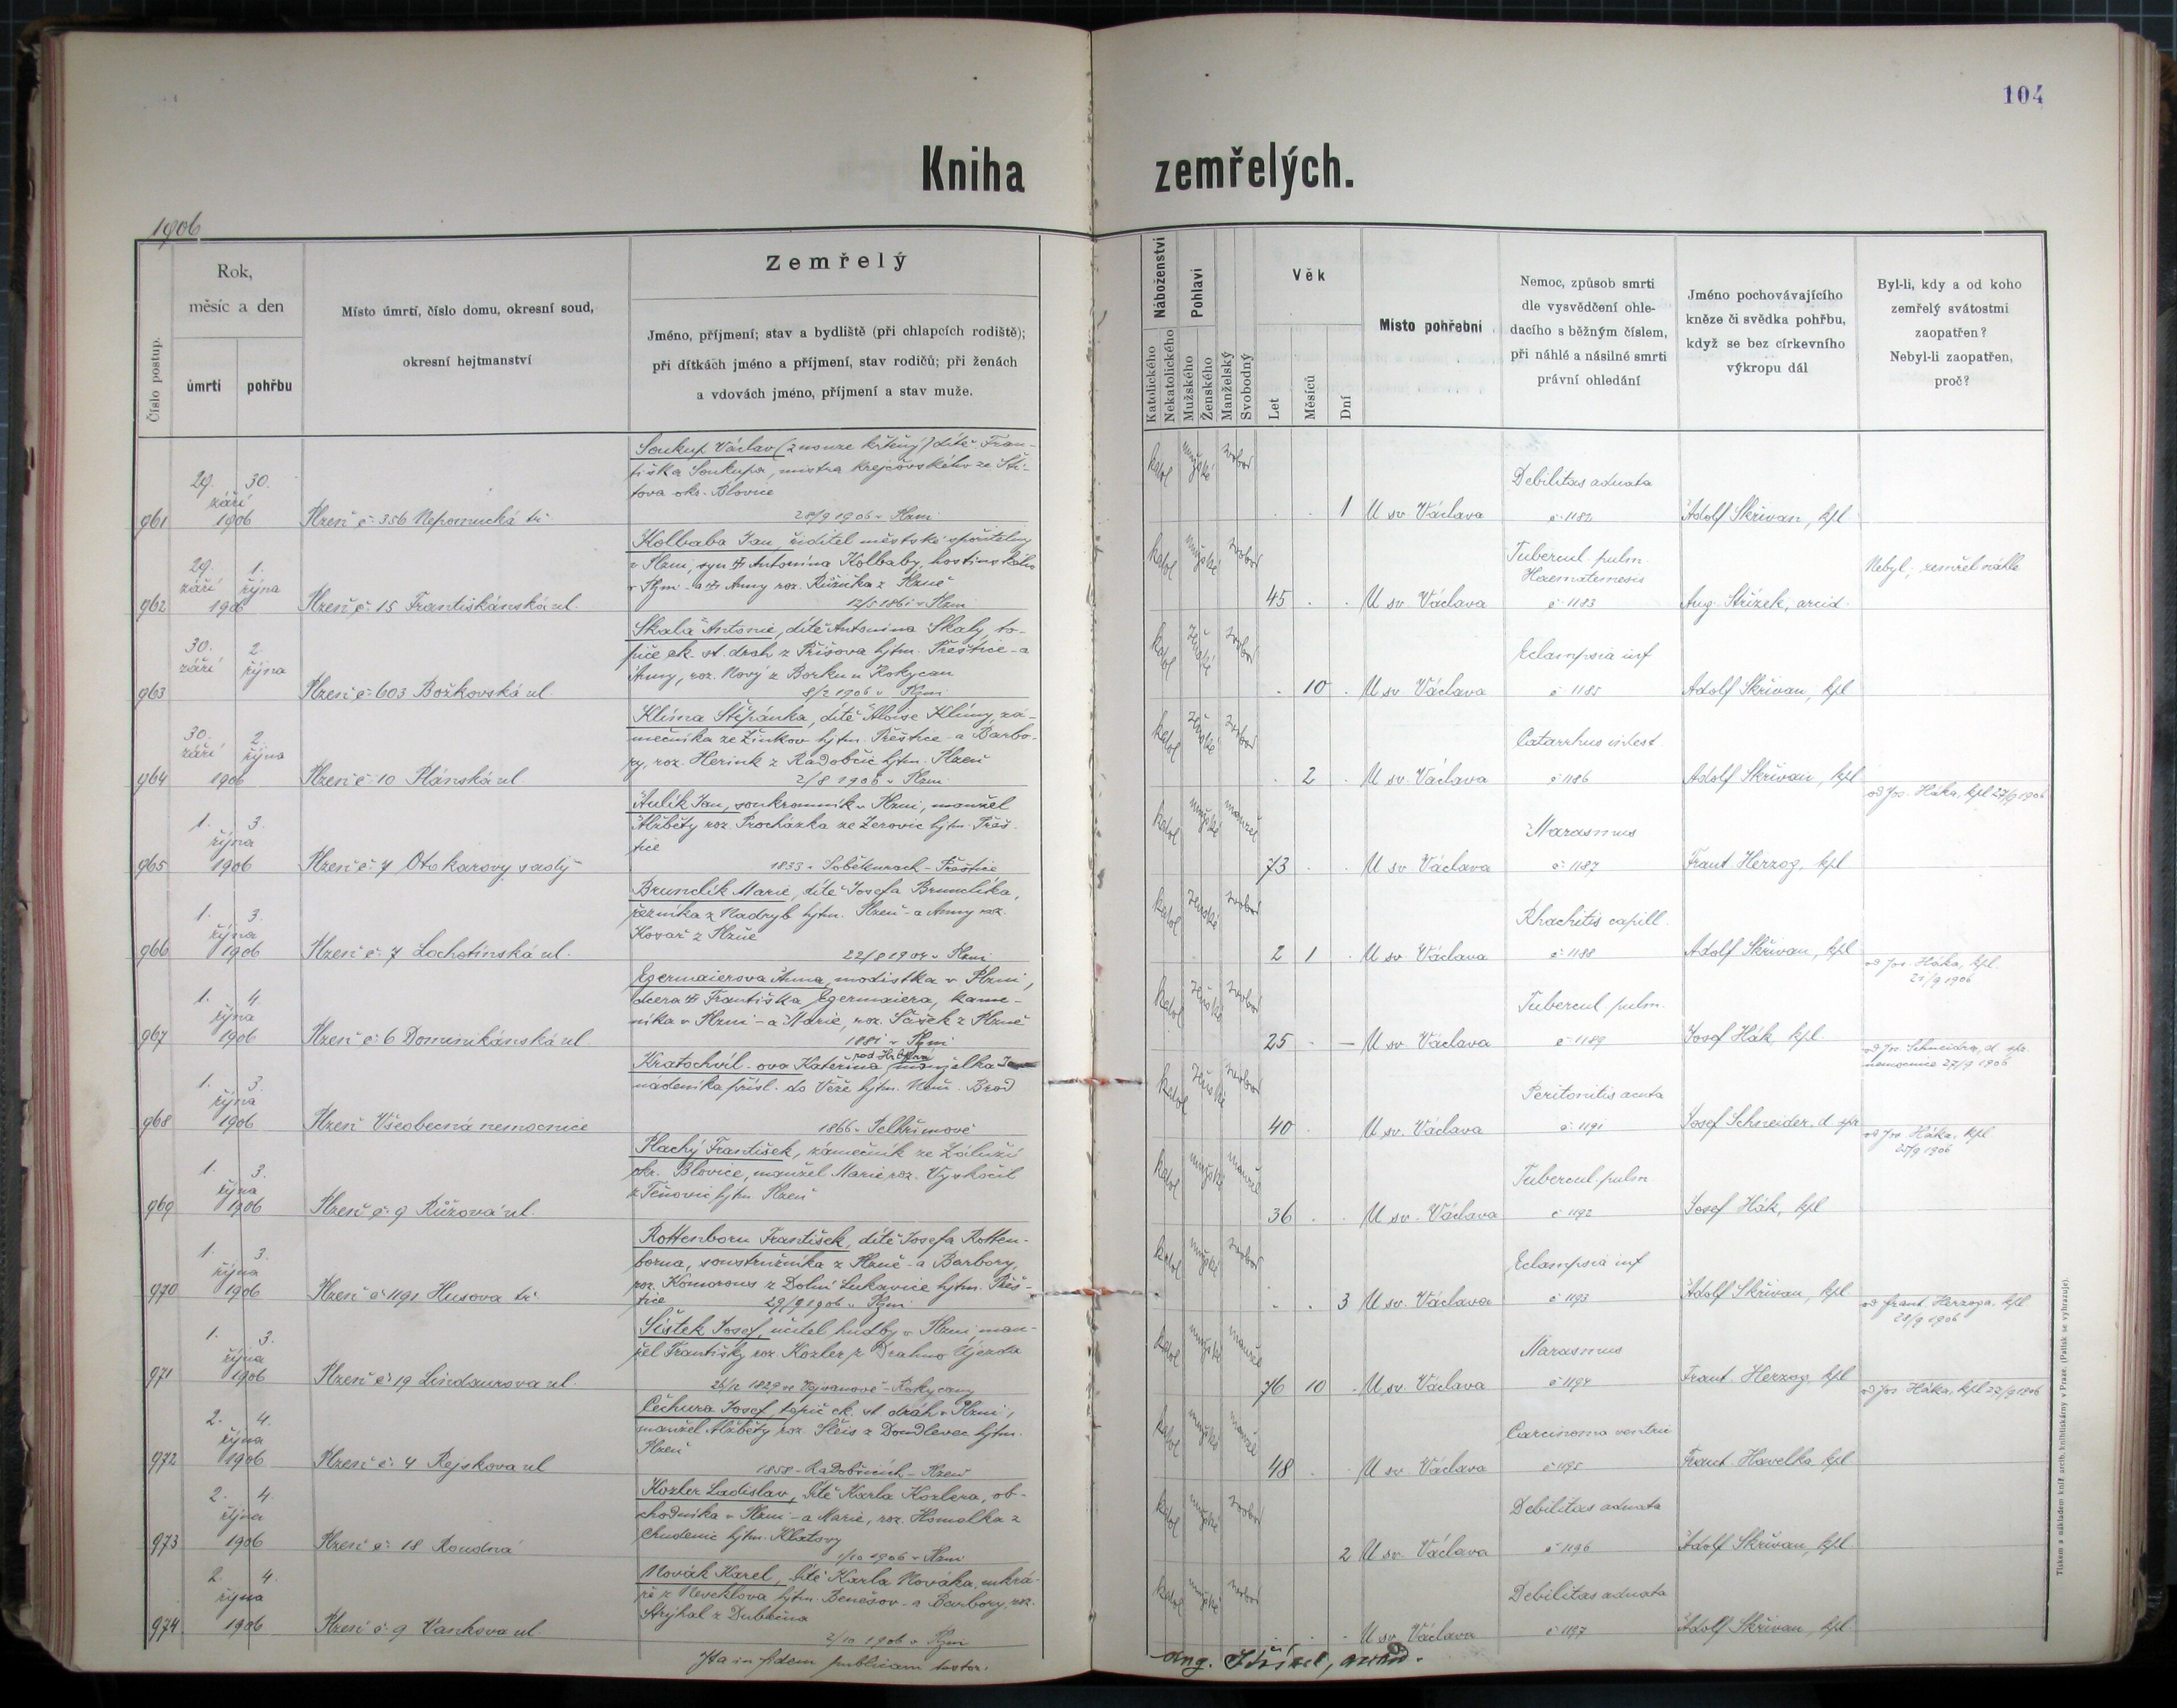 104
Kniha zemřelých.
1906
Číslo postup.
Rok,
měsíc a den
úmrtí
pohřbu
Místo úmrtí, číslo domu, okresní soud,
okresní hejtmanství
Zemřelý
Jméno, příjmení; stav a bydliště (při chlapcích rodiště);
při dítkách jméno a příjmení, stav rodičů; při ženách
a vdovách jméno, příjmení a stav muže.
Náboženství
Katolického
Nekatolického
Pohlaví
Mužského
Ženského
Manželský
Svobodný
Věk
Let
Měsíců
Dní
Místo pohřební
Nemoc, způsob smrti
dle vysvědčení ohle-
dacího s běžným číslem,
při náhlé a násilné smrti
právní ohledání
Jméno pochovávajícího
kněze či svědka pohřbu,
když se bez církevního
výkropu dál
Byl-li, kdy a od koho
zemřelý svátostmi
zaopatřen?
Nebyl-li zaopatřen,
proč?
961
29. 30.
září
1906
Plzeň č. 356 Nepomucká tř.
Soukup Václav (z nouze křtěný) dítě Fran-
tiška Soukupa, mistra krejčovského ze Ští-
tova okr. Blovice
28/9 1906 v Plzni
katol mužské svobod
1 U sv. Václava
Debilitas adnata
č. 1182
Adolf Skřivan, kpl
962
29. 1.
září října
1906
Plzeň č. 15 Františkánská ul.
Kolbaba Jan, ředitel městské spořitelny
v Plzni, syn Antonína Kolbaby, hostinského
v Plzni a Anny roz. Růžička z Plzně
12/5 1861 v Plzni
katol mužské svobod
45 U sv. Václava
Tubercul pulm.
Haematemesis
č. 1183
Aug. Střízek, arcid.
Nebyl; zemřel náhle
963
30. 2.
září října
Plzeň č. 603 Božkovská ul.
Skala Antonie, dítě Antonína Skaly, to-
piče ck. st. drah z Příšova hjtm. Přeštice a
Anny, roz. Nový z Borku u Rokycan
8/2 1906 v Plzni
katol ženské svobod
10 U sv. Václava
Eclampsia inf
č. 1185
Adolf Skřivan, kpl
964
30. 2.
září října
1906
Plzeň č. 10 Plánská ul.
Klima Štěpánka, dítě Aloise Klimy, zá-
mečníka ze Žinkov hjtm. Přeštice a Barbo-
ry, roz. Herink z Radobčic hjtm. Plzeň
2/8 1906 v Plzni
katol ženské svobod
2 U sv. Václava
Catarrhus intest
č. 1186
Adolf Skřivan, kpl
965
1. 3.
října
1906
Plzeň č. 7 Otokarovy sady
Aulík Jan, soukromník v Plzni, manžel
Alžběty roz. Procházka ze Zerovic hjtm. Přeš-
tice
1833 v Soběkurach - Přeštice
katol mužské manžel
73 U sv. Václava
Marasmus
č. 1187
Frant Herzog, kpl
od Jos. Háka, kpl 27/9 1906
966
1. 3.
října
1906
Plzeň č. 7 Lochotínská ul.
Brunclík Marie, dítě Josefa Brunclíka,
řezníka z Nadryb hjtm. Plzeň a Anny roz.
Kovař z Plzně
22/8 1904 v Plzni
katol ženské svobod
2 1 U sv. Václava
Rhachitis capill.
č. 1188
Adolf Skřivan, kpl
967
1. 4.
října
1906
Plzeň č. 6 Dominikánská ul.
Egermaierova Anna, modistka v Plzni,
dcera Františka Egermaiera, kame-
níka v Plzni a Marie, roz. Šašek z Plzně
1881 v Plzni
katol ženské svobod
25 U sv. Václava
Tubercul pulm.
č. 1189
Josef Hák, kpl.
od Jos. Háka, kpl.
21/9 1906
968
1. 3.
října
1906
Plzeň Všeobecná nemocnice
Kratochvíl-ova Kateřina manželka
nádeníka přísl. do Věže hjtm. Něm. Brod
1866 v Pelhřimově
katol ženské svobod
40 U sv. Václava
Peritonitis acuta
č. 1191
Josef Schneider, d. spr
od Jos. Schneidera, d. spr.
nemocnice 27/9 1906
969
1. 3.
října
1906
Plzeň č. 9 Růžová ul.
Plachý František, zámečník ze Záluží
okr. Blovice, manžel Marie roz. Vyskočil
z Těnovic hjtm. Plzeň
katol mužské manžel
36 U sv. Václava
Tubercul pulm
č. 1192
Josef Hák, kpl
od Jos. Háka, kpl
25/9 1906
970
1. 3.
října
1906
Plzeň č. 1191 Husova tř.
Rottenborn František, dítě Josefa Rotten-
borna, soustružníka z Plzně a Barbory,
roz. Komorous z Dolní Lukavice hjtm. Přeš-
tice 29/9 1906 v Plzni
katol mužské svobod
3 U sv. Václava
Eclampsia inf
č. 1193
Adolf Skřivan, kpl
971
1. 3.
října
1906
Plzeň č. 19 Lindaurova ul.
Šístek Josef, učitel hudby v Plzni, man-
žel Františky roz. Kozler z Drahno Újezda
1829 ve Vejvanově - Rokycany
katol mužské manžel
76 10 U sv. Václava
Marasmus
č. 1194
Frant. Herzog, kpl
od Frant. Herzoga, kpl
28/9 1906
972
2. 4.
října
1906
Plzeň č. 4 Rejskova ul
Čechura Josef, topič ck. st. dráh v Plzni,
manžel Alžběty roz. Fleis z Doudlevec hjtm.
Plzeň
1858 - Radobčicích - Plzeň
katol mužské manžel
48 U sv. Václava
Carcinoma ventric
č. 1195
Frant Havelka kpl
od Jos. Háka, kpl 22/9 1906
973
2. 4.
října
1906
Plzeň č. 18 Roudná
Kozler Ladislav, dítě Karla Kozlera, ob-
chodníka v Plzni a Marie, roz. Homolka z
Chudenic hjtm. Klatovy
1/10 1906 v Plzni
katol mužské svobod
2 U sv. Václava
Debilitas adnata
č. 1196
Adolf Skřivan, kpl.
974
2. 4.
října
1906
Plzeň č. 9 Vaňkova ul.
Novák Karel, dítě Karla Nováka, cukrá-
ře z Neveklova hjtm. Benešov a Barbory, roz.
Strýhal z Dubčina
2/10 1906 v Plzni
katol mužské svobod
U sv. Václava
Debilitas adnata
č. 1197
Adolf Skřivan, kpl.
Ita in fidem publicam testor.
Aug. Střízek, arcid.
Tiskem a nákladem kníž. arcib. knihtiskárny v Praze. (Patisk se vyhrazuje).